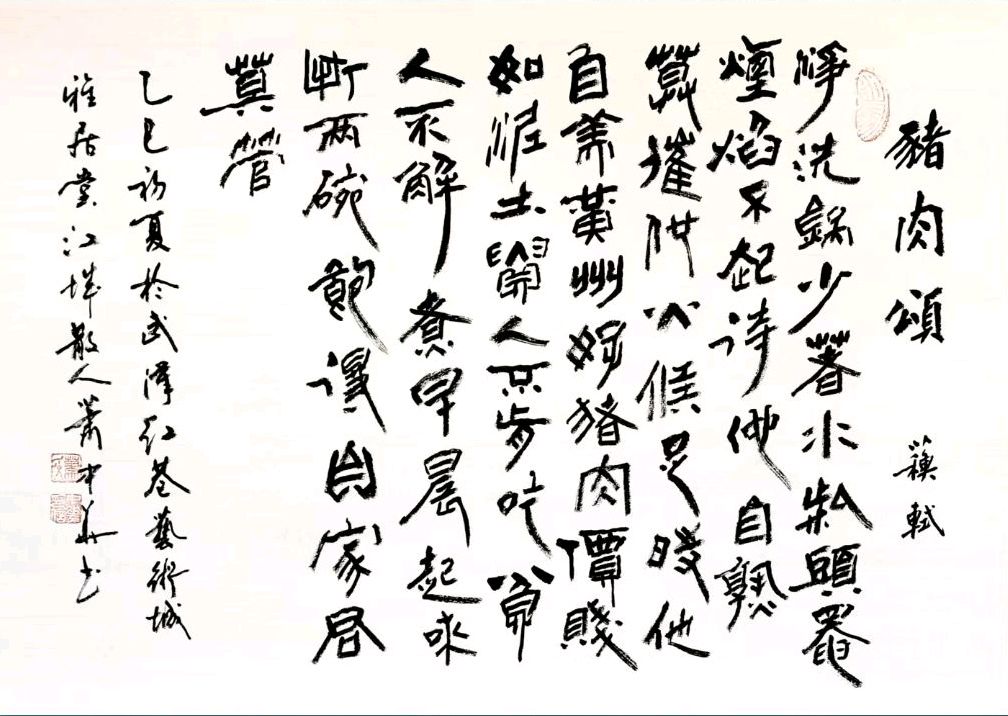 豬肉頌 蘇軾
淨洗鍋少著水柴頭罨
煙焰不起待他自熟
莫催他火候足時他
自美黃州好猪肉價賤
如泥土貴人不肯吃貧
人不解煮早晨起來
兩碗飽得自家君
莫管
乙巳初夏於武漢紅巷藝術城
雅居堂江城散人蕭中華书